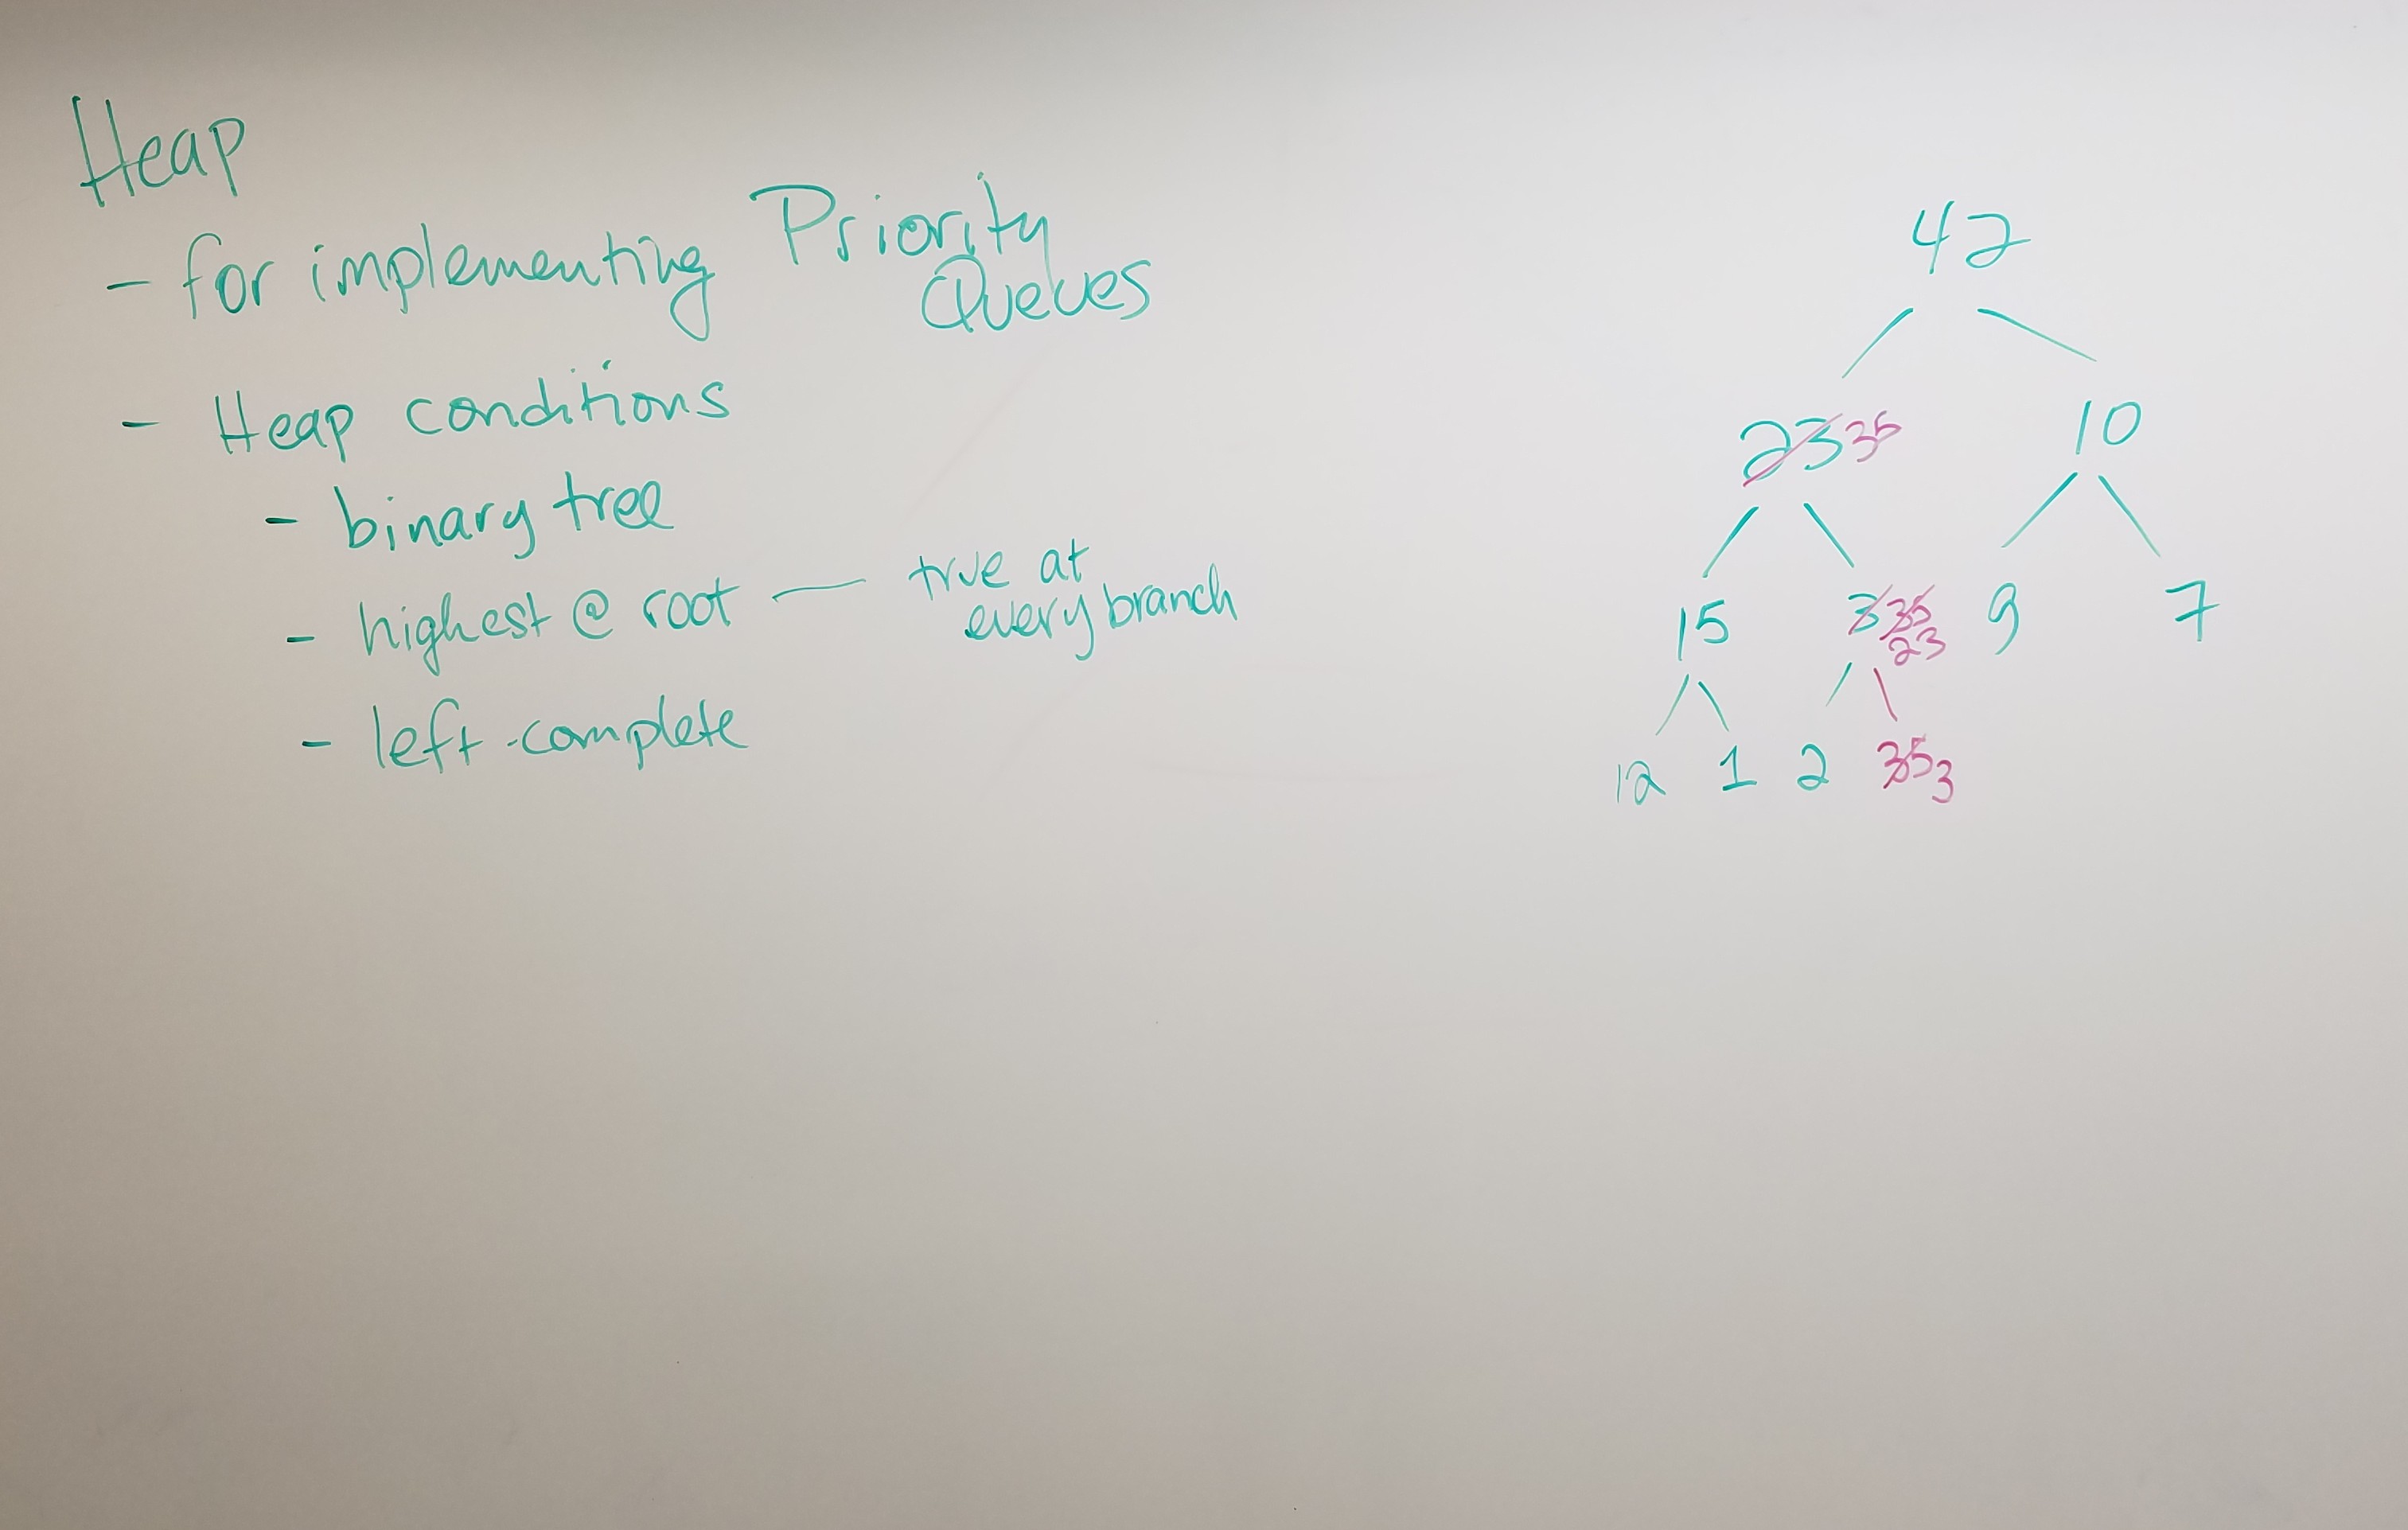 Heap
- for implementing Priority
Queues
- Heap conditions
- binary tree
- highest @ root — true at
every branch
- left-complete
42
23 35 10
15 3 35 9 7
23
12 1 2 35 3